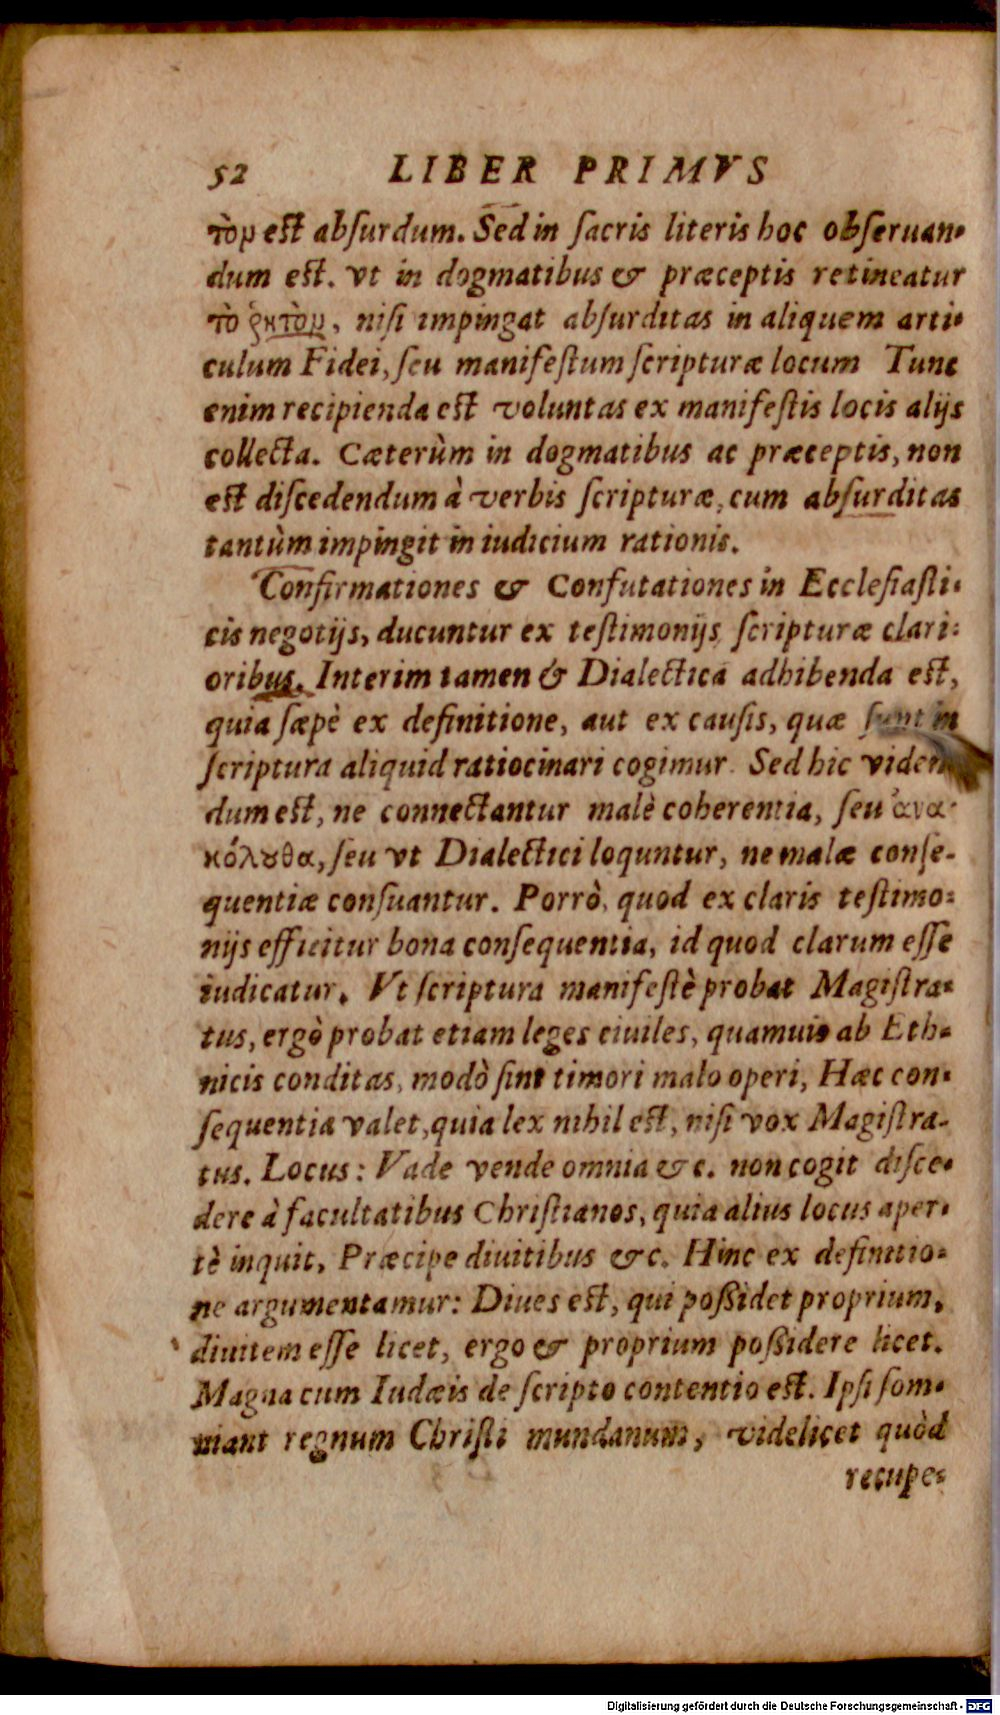 52 LIBER PRIMVS
τὸμ est absurdum. Sed in sacris literis hoc obseruan-
dum est. vt in dogmatibus & præceptis retineatur
τὸ ῥητὸμ, nisi impingat absurditas in aliquem arti-
culum Fidei, seu manifestum scripturæ locum Tunc
enim recipienda est voluntas ex manifestis locis alijs
collecta. Cæterùm in dogmatibus ac præceptis, non
est discedendum à verbis scripturæ, cum absurditas
tantùm impingit in iudicium rationis.
Confirmationes & Confutationes in Ecclesiasti-
cis negotijs, ducuntur ex testimonijs scripturæ clari-
oribus. Interim tamen & Dialectica adhibenda est,
quia sæpè ex definitione, aut ex causis, quæ sunt in
scriptura aliquid ratiocinari cogimur. Sed hic viden
dum est, ne connectantur malè coherentia, seu ἀνα-
κόλουθα, seu vt Dialectici loquntur, ne malæ conse-
quentiæ consuantur. Porrò, quod ex claris testimo-
nijs efficitur bona consequentia, id quod clarum esse
iudicatur. Vt scriptura manifestè probat Magistra-
tus, ergò probat etiam leges ciuiles, quamuis ab Eth-
nicis conditas, modò sint timori malo operi, Hæc con-
sequentia valet, quia lex nihil est, nisi vox Magistra-
tus. Locus: Vade vende omnia &c. non cogit disce-
dere à facultatibus Christianos, quia alius locus aper-
tè inquit, Præcipe diuitibus &c. Hinc ex definitio-
ne argumentamur: Diues est, qui poßidet proprium,
diuitem esse licet, ergo & proprium poßidere licet.
Magna cum Iudæis de scripto contentio est. Ipsi som-
niant regnum Christi mundanum, videlicet quòd
recupe-
Digitalisierung gefördert durch die Deutsche Forschungsgemeinschaft - DFG